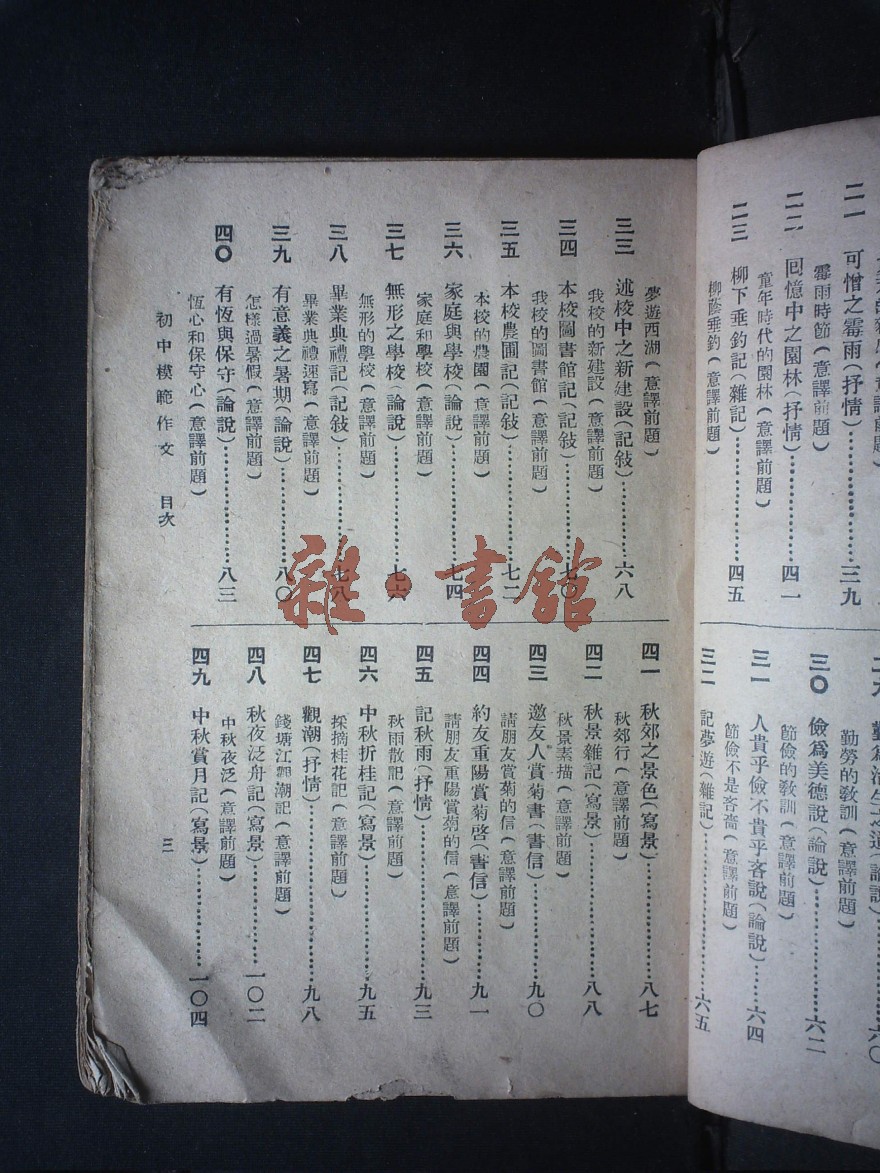 二一 可憎之霉雨(抒情)…………三九
霉雨時節(意譯前題)
二二 回憶中之園林(抒情)…………四一
童年時代的園林(意譯前題)
二三 柳下垂釣記(雜記)…………四五
柳蔭垂釣(意譯前題)
勤勞的教訓(意譯前題)
三〇 儉爲美德說(論說)…………六二
節儉的教訓(意譯前題)
三一 人貴乎儉不貴乎吝說(論說)……六四
節儉不是吝嗇(意譯前題)
三二 記夢遊(雜記)…………六五
夢遊西湖(意譯前題)
三三 述校中之新建設(記敍)…………六八
我校的新建設(意譯前題)
三四 本校圖書館記(記敍)…………七〇
我校的圖書館(意譯前題)
三五 本校農圃記(記敍)…………七二
本校的農園(意譯前題)
三六 家庭與學校(論說)…………七四
家庭和學校(意譯前題)
三七 無形之學校(論說)…………七六
無形的學校(意譯前題)
三八 畢業典禮記(記敍)…………七八
畢業典禮速寫(意譯前題)
三九 有意義之暑期(論說)…………八〇
怎樣過暑假(意譯前題)
四〇 有恆與保守(論說)…………八三
恆心和保守心(意譯前題)
四一 秋郊之景色(寫景)…………八七
秋郊行(意譯前題)
四二 秋景雜記(寫景)…………八八
秋景素描(意譯前題)
四三 邀友人賞菊書(書信)…………九〇
請朋友賞菊的信(意譯前題)
四四 約友重陽賞菊啓(書信)…………九一
請朋友重陽賞菊的信(意譯前題)
四五 記秋雨(抒情)…………九三
秋雨散記(意譯前題)
四六 中秋折桂記(寫景)…………九五
採摘桂花記(意譯前題)
四七 觀潮(抒情)…………九八
錢塘江觀潮記(意譯前題)
四八 秋夜泛舟記(寫景)…………一〇二
中秋夜泛(意譯前題)
四九 中秋賞月記(寫景)…………一〇四
初中模範作文 目次
三
雜·書館